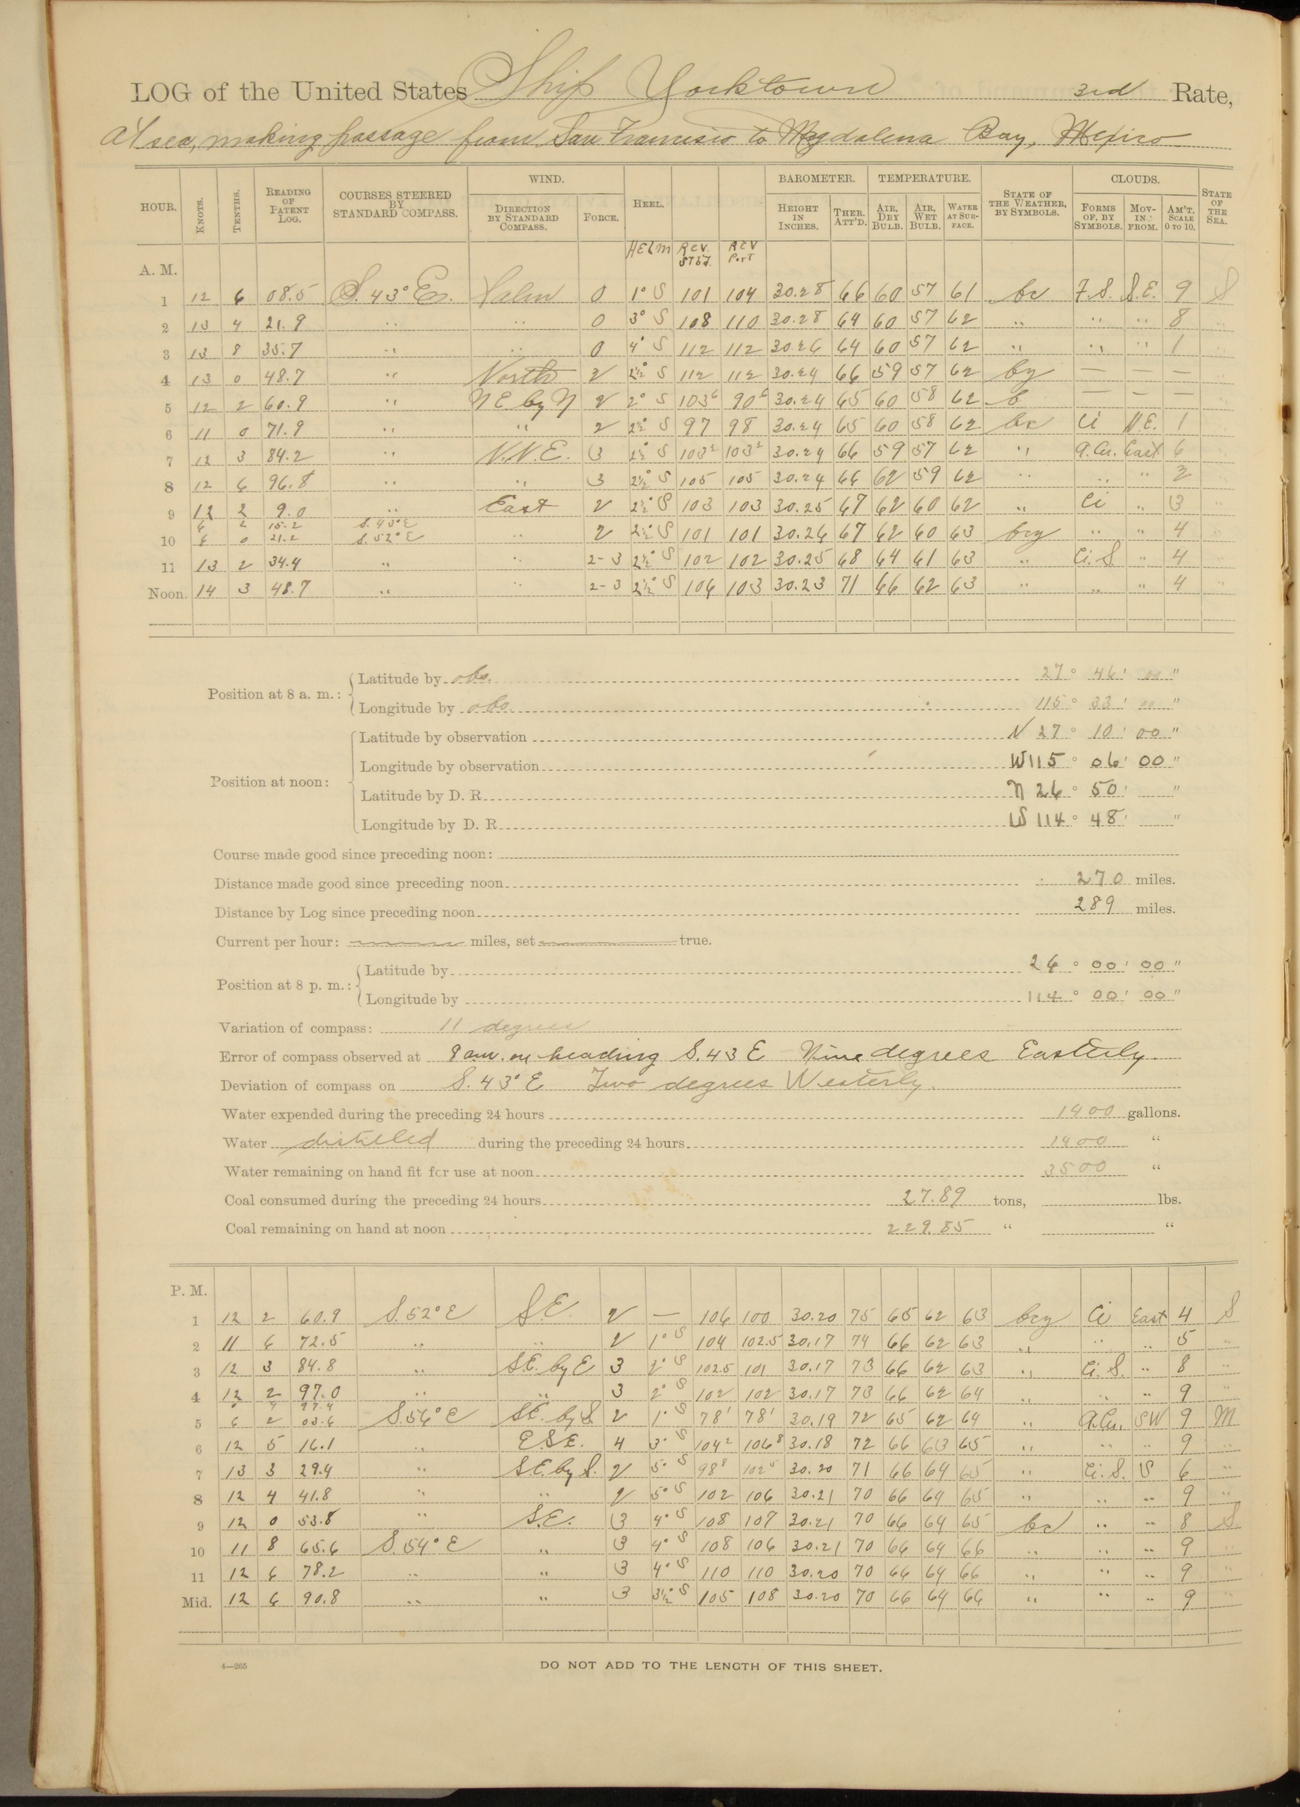 LOG of the United States Ship Yorktown 3rd Rate,
At sea, making passage from San Francisco to Magdalena Bay, Mexico
HOUR. KNOTS. TENTHS. READING OF PATENT LOG. COURSES STEERED BY STANDARD COMPASS. WIND. DIRECTION BY STANDARD COMPASS. FORCE. HEEL. BAROMETER. HEIGHT IN INCHES. THER. ATT'D. TEMPERATURE. AIR, DRY BULB. AIR, WET BULB. WATER AT SURFACE. STATE OF THE WEATHER, BY SYMBOLS. CLOUDS. FORMS OF, BY SYMBOLS. MOVING FROM. AM'T. SCALE 0 TO 10. STATE OF THE SEA.
HELM REV. STBD. REV Port
A. M.
1 12 6 08.5 S. 43° E. Calm 0 1° S 101 104 30.28 66 60 57 61 bc F.S. S.E. 9 S
2 13 4 21.9 " " 0 3° S 108 110 30.28 64 60 57 62 " " " 8 "
3 13 8 35.7 " " 0 4° S 112 112 30.26 64 60 57 62 " " " 1 "
4 13 0 48.7 " North 2 2½° S 112 112 30.24 66 59 57 62 by — — — "
5 12 2 60.9 " NE by N 2 2° S 103⁶ 90⁶ 30.24 65 60 58 62 b — — — "
6 11 0 71.9 " " 2 2½° S 97 98 30.24 65 60 58 62 bc Ci N.E. 1 "
7 12 3 84.2 " N.N.E. 3 2½° S 103² 103² 30.24 66 59 57 62 " A.Cu. East 6 "
8 12 6 96.8 " " 3 2½° S 105 105 30.24 66 62 59 62 " " " 2 "
9 12 2 9.0 " East 2 2½° S 103 103 30.25 67 62 60 62 " Ci " 3 "
6 2 15.2 S. 43° E
10 6 0 21.2 S. 52° E " 2 2½° S 101 101 30.26 67 62 60 63 bcy " " 4 "
11 13 2 34.4 " " 2-3 2½° S 102 102 30.25 68 64 61 63 " Ci.S. " 4 "
Noon. 14 3 48.7 " " 2-3 2½° S 106 103 30.23 71 66 62 63 " " " 4 "
Position at 8 a. m.: Latitude by obs. 27° 46' 00"
Longitude by obs 115° 33' 00"
Position at noon: Latitude by observation N 27° 10' 00"
Longitude by observation W 115° 06' 00"
Latitude by D. R. N 26° 50' "
Longitude by D. R. W 114° 48' "
Course made good since preceding noon:
Distance made good since preceding noon 270 miles.
Distance by Log since preceding noon 289 miles.
Current per hour: miles, set true.
Position at 8 p. m.: Latitude by 26° 00' 00"
Longitude by 114° 00' 00"
Variation of compass: 11 degrees
Error of compass observed at 9 a.m. on heading S. 43 E Nine degrees Easterly.
Deviation of compass on S. 43° E Two degrees Westerly.
Water expended during the preceding 24 hours 1400 gallons.
Water distilled during the preceding 24 hours 1400 "
Water remaining on hand fit for use at noon 3500 "
Coal consumed during the preceding 24 hours 27.89 tons, lbs.
Coal remaining on hand at noon 229.85 " "
P. M.
1 12 2 60.9 S. 52° E S.E. 2 — 106 100 30.20 75 65 62 63 bcy Ci East 4 S
2 11 6 72.5 " " 2 1° S 104 102.5 30.17 74 66 62 63 " " " 5 "
3 12 3 84.8 " SE. by E 3 2° S 102.5 101 30.17 73 66 62 63 " Ci.S. " 8 "
4 12 2 97.0 " " 3 2° S 102 102 30.17 73 66 62 64 " " " 9 "
5 6 2 03.6 S. 56° E SE. by S. 2 1° S 78¹ 78¹ 30.19 72 65 62 64 " A.Cu. SW 9 M
6 12 5 16.1 " E.S.E. 4 3° S 104² 106⁸ 30.18 72 66 63 65 " " " 9 "
7 13 3 29.4 " SE. by S. 2 5° S 98⁸ 102⁵ 30.20 71 66 64 65 " Ci.S. S 6 "
8 12 4 41.8 " " 2 5° S 102 106 30.21 70 66 64 65 " " " 9 "
9 12 0 53.8 " S.E. 3 4° S 108 107 30.21 70 66 64 65 bc " " 8 S.
10 11 8 65.6 S. 54° E " 3 4° S 108 106 30.21 70 66 64 66 " " " 9 "
11 12 6 78.2 " " 3 4° S 110 110 30.20 70 66 64 66 " " " 9 "
Mid. 12 6 90.8 " " 3 3½° S 105 108 30.20 70 66 64 66 " " " 9 "
4—265 DO NOT ADD TO THE LENGTH OF THIS SHEET.